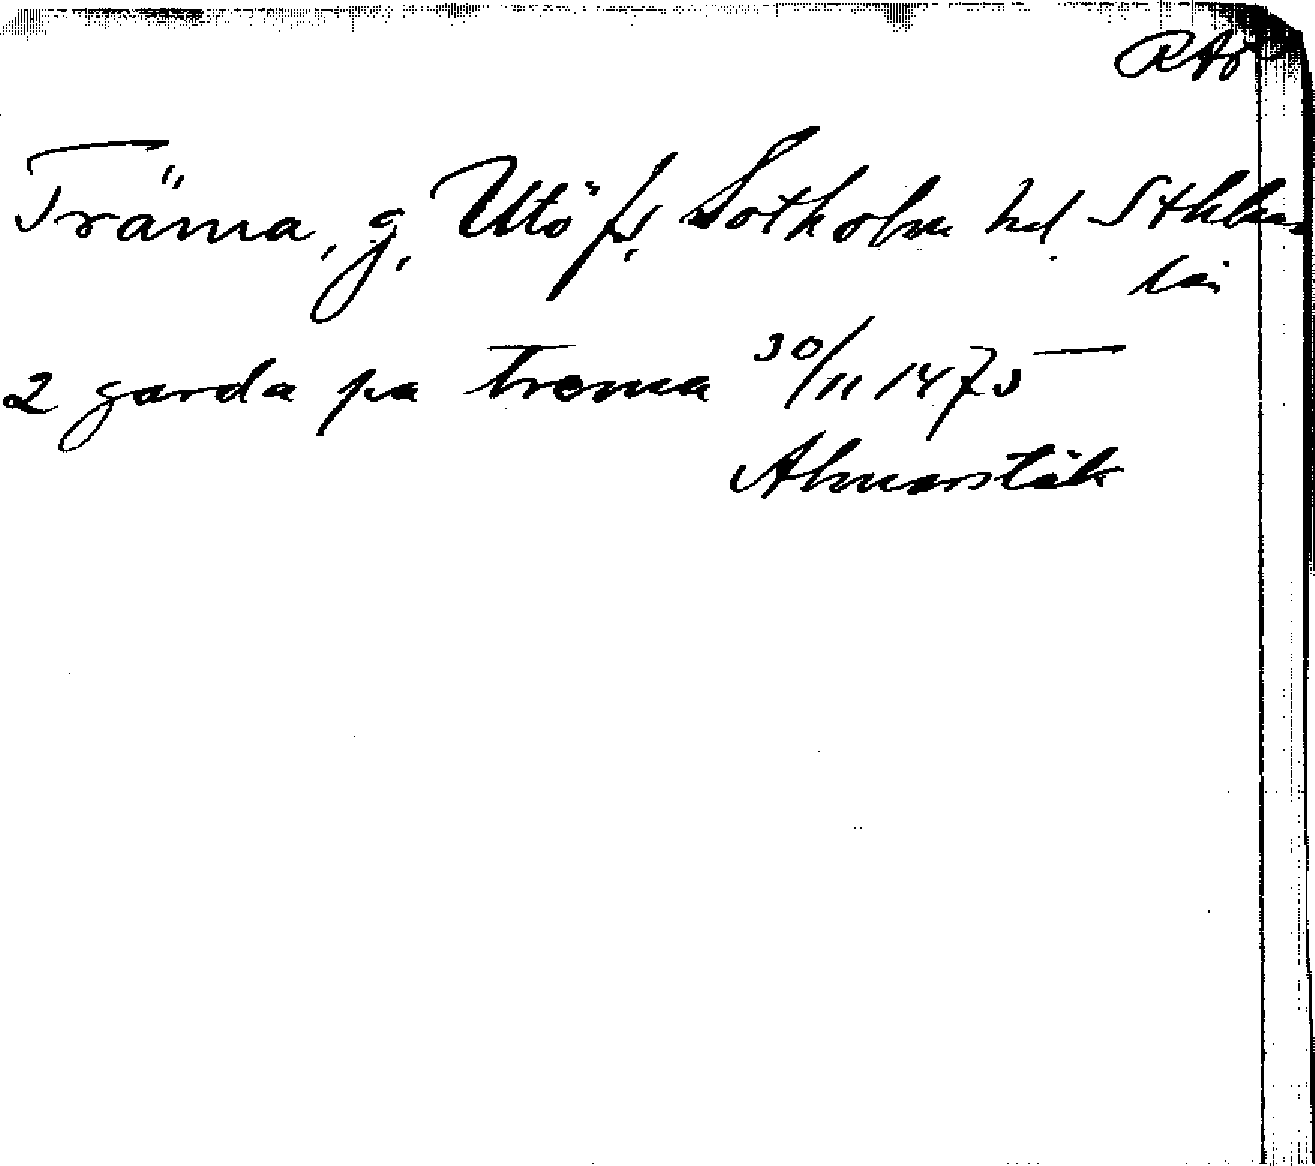 RAP
Träma, g, Utö fs, Sotholm hd Sthlms
län
2 garda pa trema 30/11 1475
Almarstäk